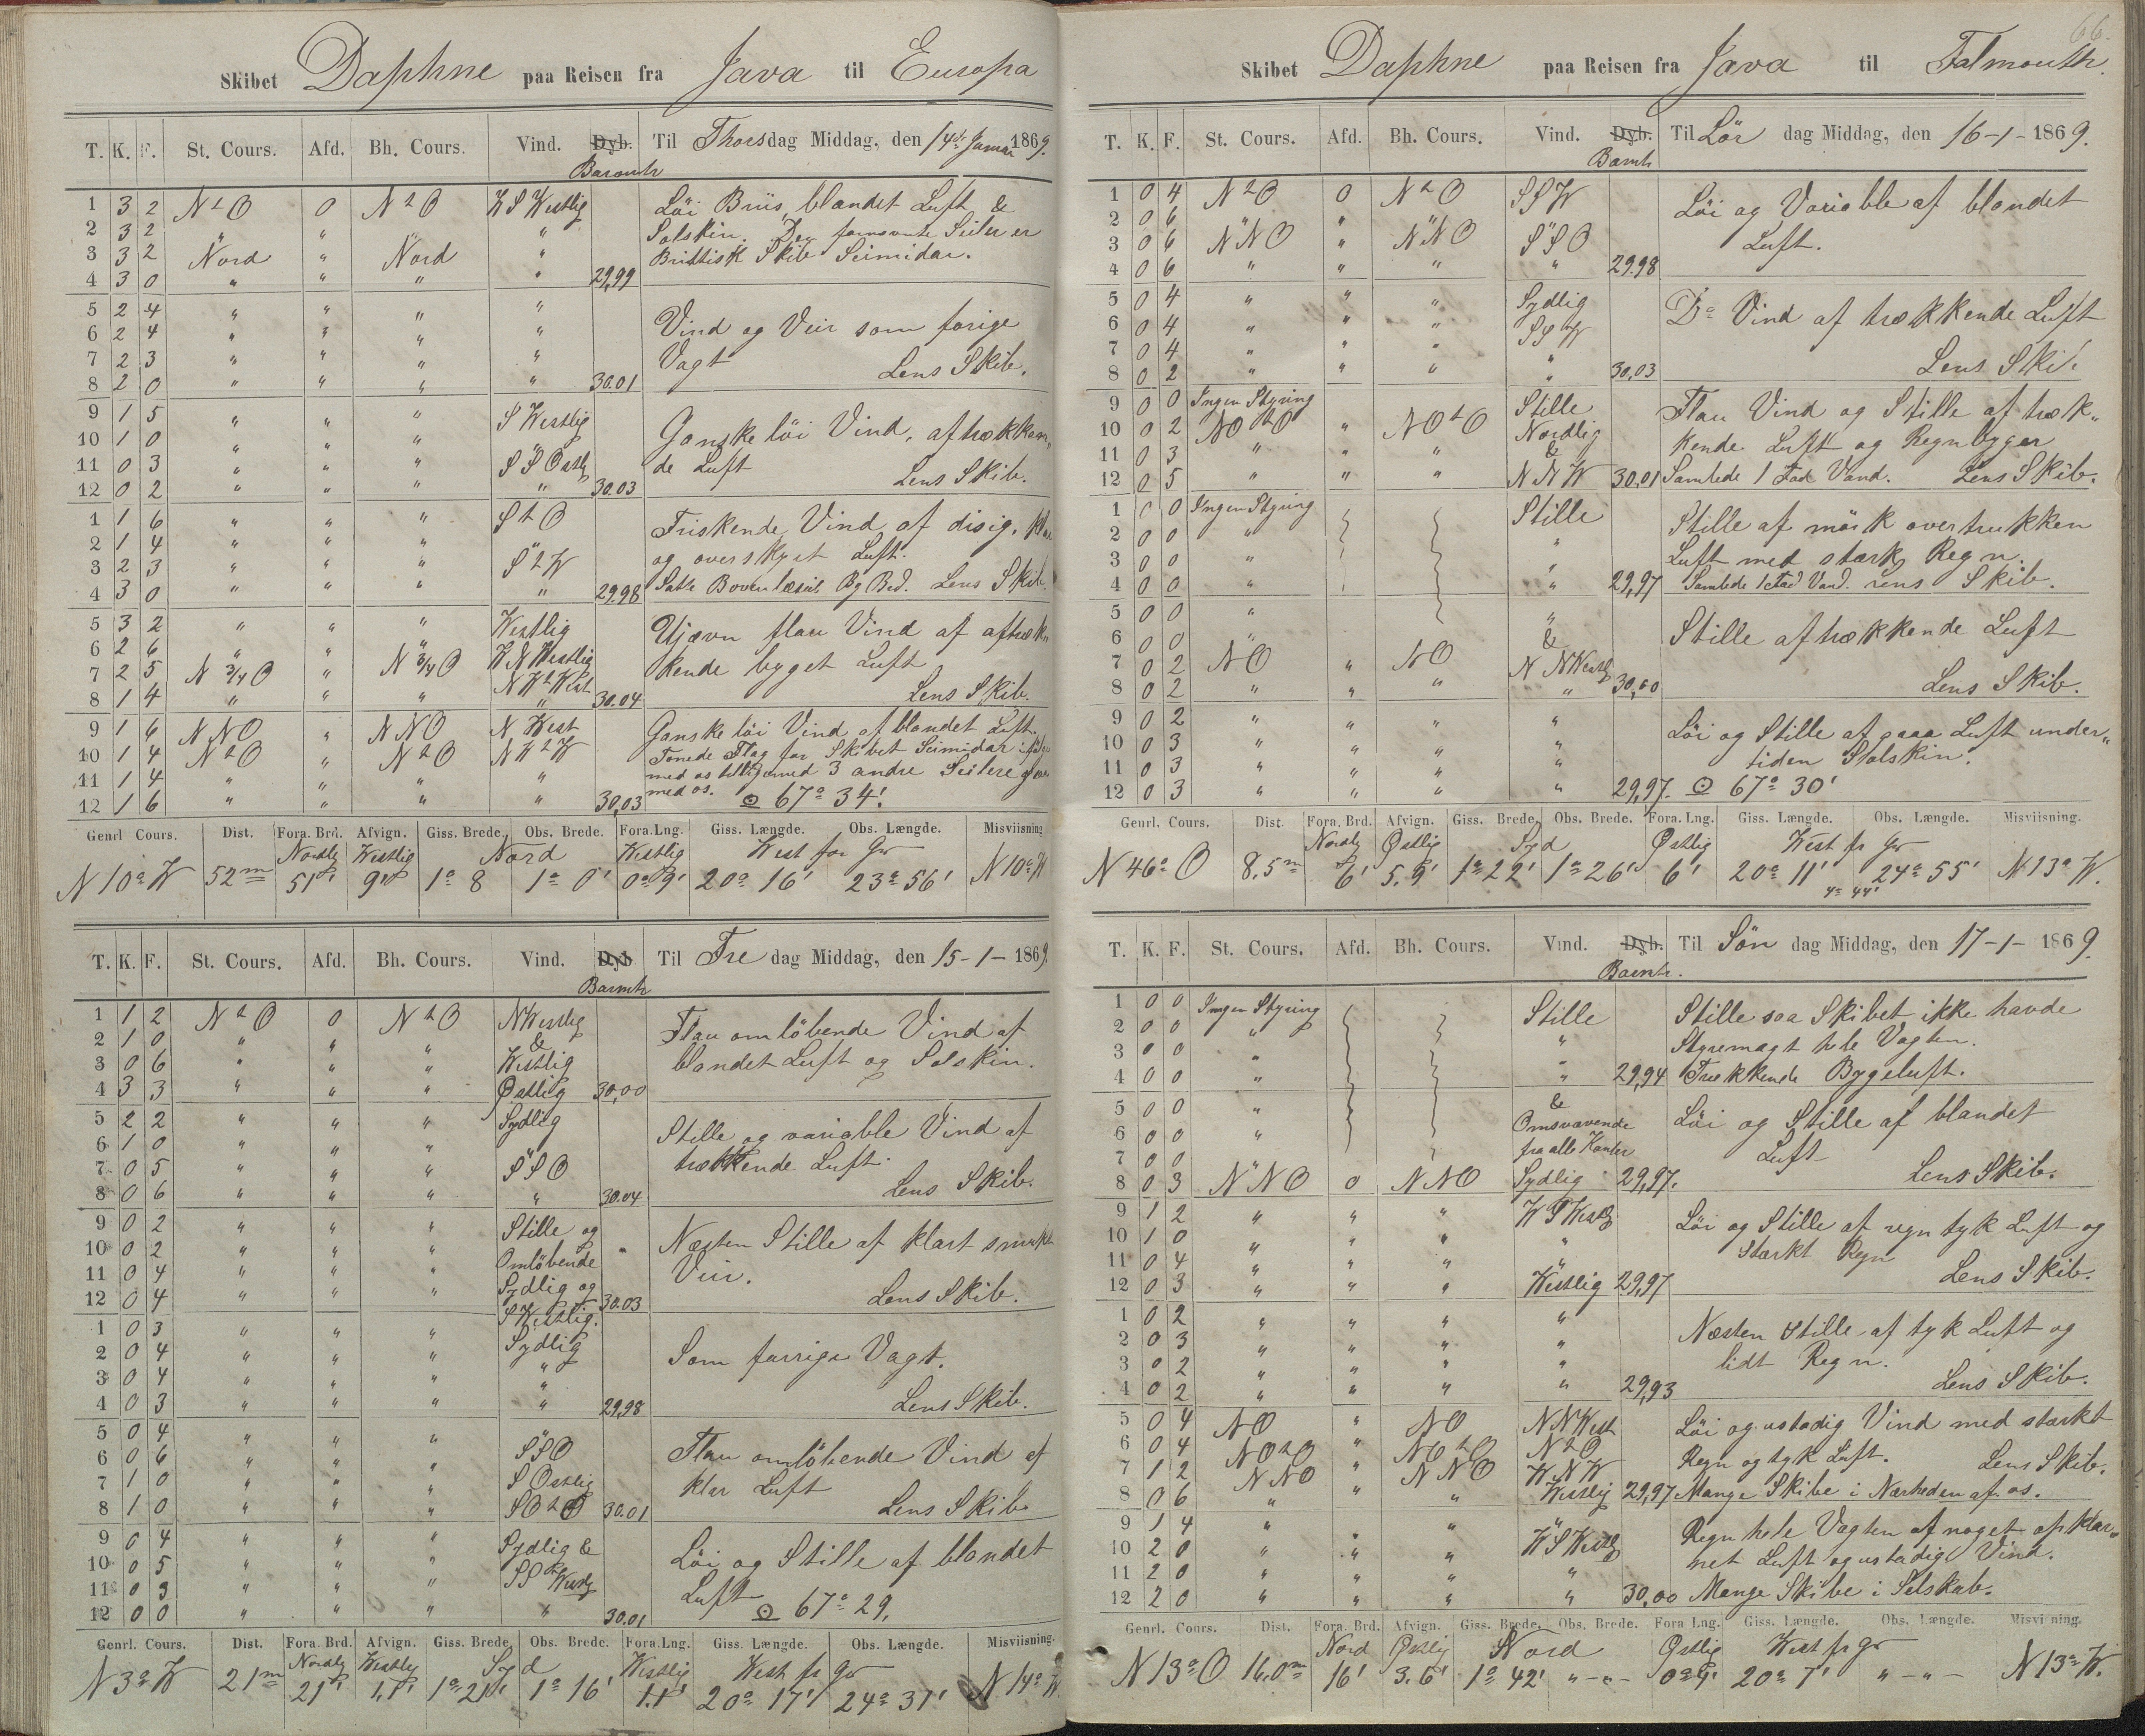 Skibet Daphne paa Reisen fra Java til Europa
T. K. F. St. Cours. Afd. Bh. Cours. Vind. Dyb. Til Thorsdag Middag, den 14de Januar 1869.
Baromtr
1 3 2 N t O 0 N t O W S Westlig Löi Briis, blandet Luft &
2 3 2 " " " " Solskin. Den fornævnte Seiler er
3 3 2 Nord " Nord " Brittisk Skib Seimidar.
4 3 0 " " " " 29,99
5 2 4 " " " "
6 2 4 " " " " Vind og Veir som forige
7 2 3 " " " " Vagt Lens Skib.
8 2 0 " " " " 30.01
9 1 5 " " " S Westlig
10 1 0 " " " " Ganske löi Vind, aftrækken„
11 0 3 " " " S S Ostlg de Luft Lens Skib.
12 0 2 " " " " 30.03
1 1 6 " " " S t O Friskende Vind af disig,
2 1 4 " " " " og overskyet Luft.
3 2 3 " " " S t W
4 3 0 " " " " 29.98 Satte Bovenlæseil Bg Bd. Lens Skib
5 3 2 " " " Westlig Ujævn flau Vind af aftræk„
6 2 6 " " " W N Westlig
7 2 5 N 3/4 O " N 3/4 O N W t West kende byget Luft
8 1 4 " " " " 30.04 Lens Skib.
9 1 6 N N O " N N O N West Ganske löi Vind af blandet Luft.
10 1 4 N t O " N t O N W t W Tonede Flag for Skibet Seimidar ifölge
11 1 4 " " " " med os tilligemed 3 andre Seilere
12 1 6 " " " " 30,03 med os. ⊙ 67° 34'.
Genrl Cours. Dist. Fora. Brd. Afvign. Giss. Brede. Obs. Brede. Fora.Lng. Giss. Længde. Obs. Længde. Misviisning
Nordlg Westlig Nord Westlig West for Gr
N 10° W 52 m 51' 9' 1° 8 1° 0' 0° 9' 20° 16' 23° 56' N 10° W
T. K. F. St. Cours. Afd. Bh. Cours. Vind. Dyb. Til Fredag Middag, den 15-1-1869.
Baromtr
1 1 2 N t O 0 N t O NWestlig Flau omlöbende Vind af
2 1 0 " " " &
3 0 6 " " " Westlig blandet Luft og Solskin.
4 3 3 " " " Østlig 30,00
5 2 2 " " " Sydlig Stille og variable Vind af
6 1 0 " " " "
7 0 5 " " " S S O trækkende Luft.
8 0 6 " " " " 30.04 Lens Skib.
9 0 2 " " " Stille og Næsten Stille af klart smukt
10 0 2 " " " Omlöbende
11 0 4 " " " Sydlig og Veir.
12 0 4 " " " S Westlig. 30.03 Lens Skib.
1 0 3 " " " Sydlig
2 0 4 " " " " Som forrige Vagt.
3 0 4 " " " "
4 0 3 " " " " 29,98 Lens Skib.
5 0 4 " " "
6 0 6 " " " S S O Flau omlöbende Vind af
7 1 0 " " " S Ostlig klar Luft
8 1 0 " " " S O t O 30.01 Lens Skib.
9 0 4 " " " Sydlig &
10 0 5 " " " S S Westlg Löi og Stille af blandet
11 0 3 " " " Luft
12 0 0 " " " " 30.01 ⊙ 67° 29,
Genrl. Cours. Dist. Fora. Brd. Afvign. Giss. Brede. Obs. Brede. Fora.Lng. Giss. Længde. Obs. Længde. Misviisning.
Nordlg Westlig Syd Westlig West fr Gr
N 3° W 21 m 21' 1.1' 1° 21' 1° 16' 1.1' 20° 17' 24° 31' N 14° W
66.
Skibet Daphne paa Reisen fra Java til Falmouth.
T. K. F. St. Cours. Afd. Bh. Cours. Vind. Dyb. Til Lördag Middag, den 16-1-1869.
Bamtr
1 0 4 N t O 0 N t O S S W Löi og Variable af blandet
2 0 6 " " " "
3 0 6 N N O " N N O S S O Luft.
4 0 6 " " " " 29.98
5 0 4 " " " Sydlig Do Vind af trækkende Luft
6 0 4 " " " S S W
7 0 4 " " " "
8 0 2 " " " " 30,03 Lens Skib.
9 0 0 Ingen Styring Stille Flau Vind og Stille af træk„
10 0 2 N O t O " N O t O Nordlig kende Luft og Regnbyger
11 0 3 " " " &
12 0 5 " " " N N W 30,01 Samlede 1 Fad Vand. Lens Skib.
1 0 0 Ingen Styring Stille Stille af mörk overtrukken
2 0 0 " " Luft med stærk Regn.
3 0 0 " "
4 0 0 " " 29,97 Samlede 1 Fad Vand. Lens Skib.
5 0 0 " " Stille aftrækkende Luft
6 0 0 " &
7 0 2 N O " N O N N Westlg
8 0 2 " " " " 30,00 Lens Skib.
9 0 2 " " " " Löi og Stille af graa Luft under„
10 0 3 " " " "
11 0 3 " " " " tiden Solskin.
12 0 3 " " " " 29,97. ⊙ 67° 30'
Genrl. Cours. Dist. Fora. Brd. Afvign. Giss. Brede. Obs. Brede. Fora. Lng. Giss. Længde. Obs. Længde. Misviisning.
Nordlg Østlig Syd Østlig West fr Gr
N 46° O 8,5 m 6' 5.9' 1° 22' 1° 26' 6' 20° 11' 24° 55' N 13° W.
4° 44'
T. K. F. St. Cours. Afd. Bh. Cours. Vind. Dyb. Til Söndag Middag, den 17-1-1869.
Bamtr.
1 0 0 Ingen Styring Stille Stille saa Skibet ikke havde
2 0 0 " " Styremagt hele Vagten.
3 0 0 "
4 0 0 " " 29,94 Trækkende Bygeluft.
5 0 0 " & Löi og Stille af blandet
6 0 0 " Omsvævende
7 0 0 fra alle Kanter Luft
8 0 3 N N O 0 N N O Sydlig 29,97. Lens Skib.
9 1 2 " " " W S Westlg Löi og Stille af regn tyk Luft og
10 1 0 " " " " Stærkt Regn
11 0 4 " " " "
12 0 3 " " " Westlig 29,97 Lens Skib.
1 0 2 " " " "
2 0 3 " " " " Næsten Stille af tyk Luft og
3 0 2 " " " " lidt Regn.
4 0 2 " " " " 29,93 Lens Skib.
5 0 4 N O " N O N N West Löi og ustadig Vind med stærkt
6 0 4 N O t O " N O t O N t O Regn og tyk Luft. Lens Skib.
7 1 2 N N O " N N O W N W
8 0 6 " " " Westlig 29,97 Mange Skibe i Nærheden af os.
9 1 4 " " " " Regn hele Vagten af noget opklar„
10 2 0 " " " W S Westlg net Luft og ustadig Vind.
11 2 0 " " " "
12 2 0 " " " " 30,00 Mange Skibe i Selskab.
Genrl. Cours. Dist. Fora. Brd. Afvign. Giss. Brede. Obs. Brede. Fora Lng. Giss. Længde. Obs. Længde. Misviisning.
Nord Østlig Nord Østlig West fr Gr
N 13° O 16,0 m 16' 3.6' 1° 42' " - " - 0° 4' 20° 7' " - " - N 13° W.